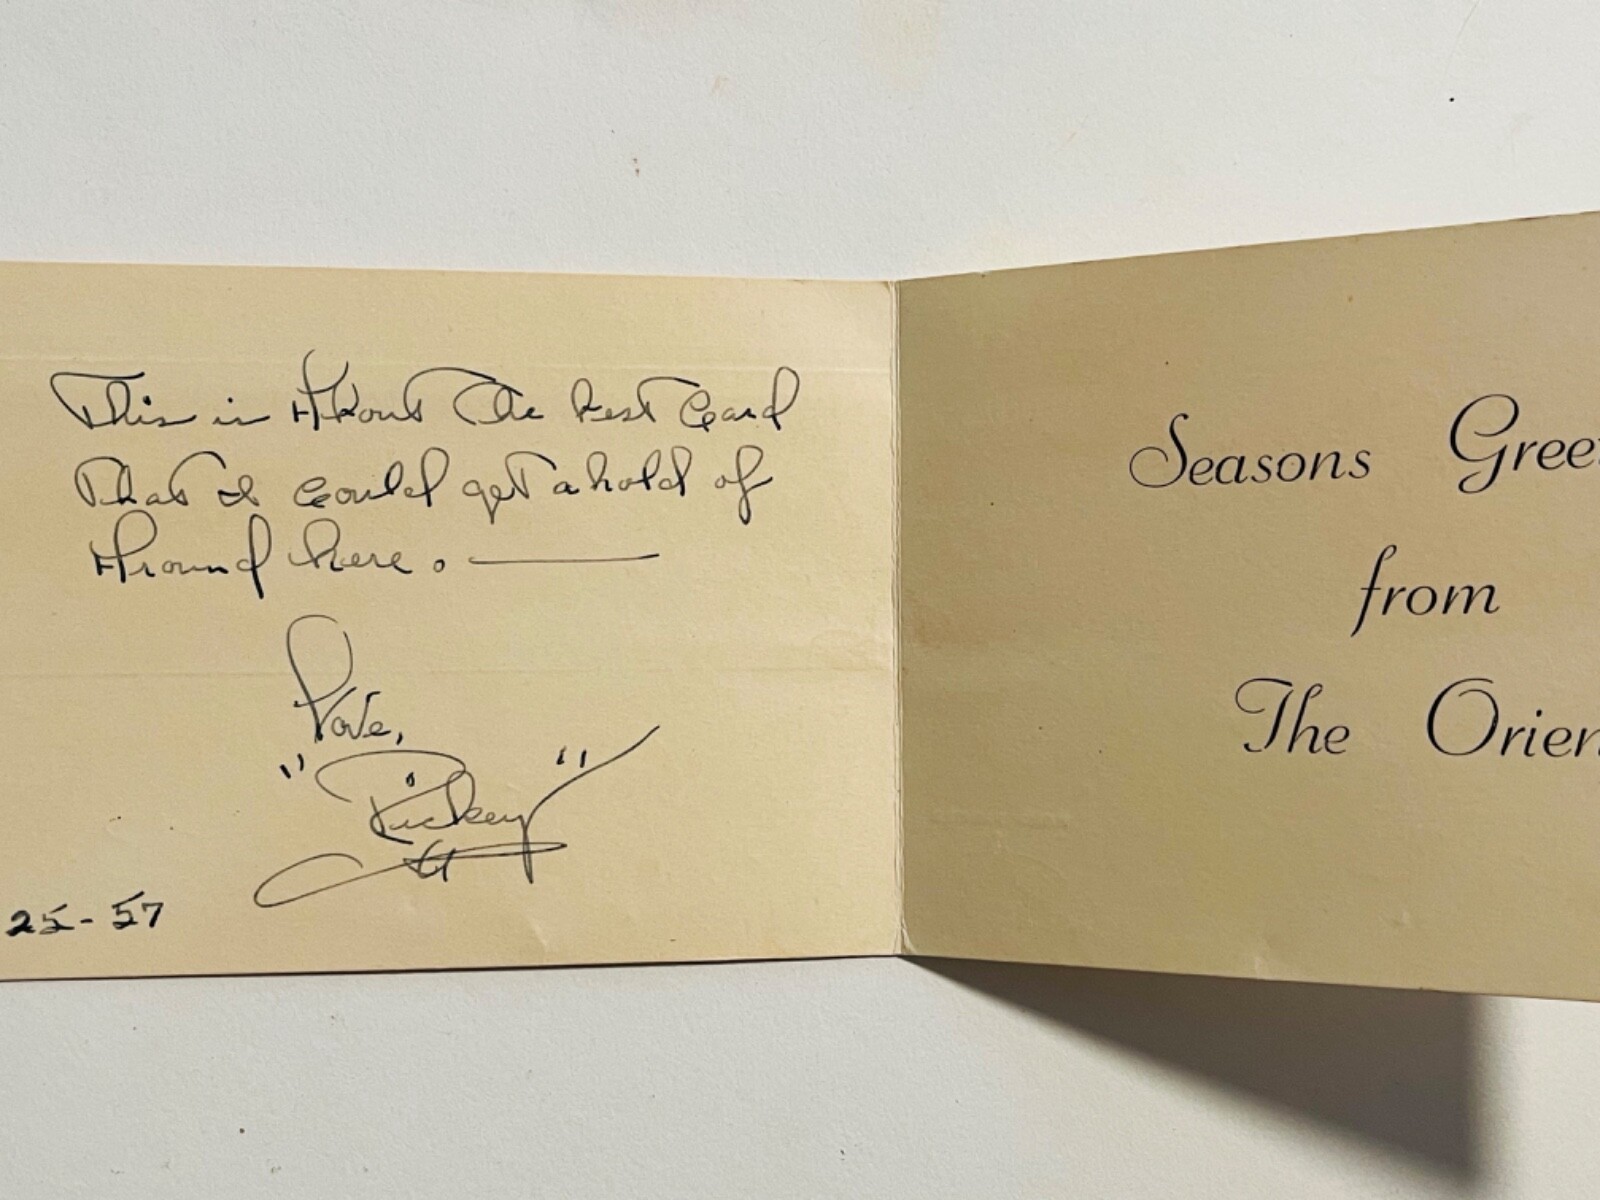 This is About The best Card
That I Could get a hold of
Around here.
Love,
"Dickey"
25-57
Seasons Greet
from
The Orien